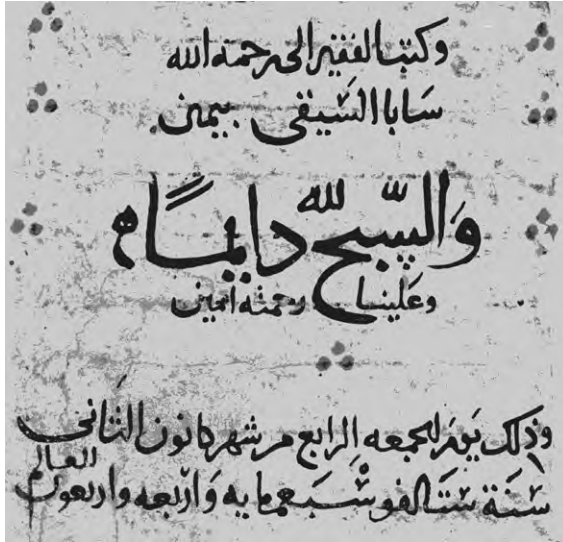 وكتب الفقير الى رحمته الله
سابا السيقى بيمين
والسبح لله دايمًا
وعلينا رحمته امين
وذلك يوم الجمعه الرابع من شهر كانون الثانى
سنة ستالف وسبعمايه واربعه واربعون
العالم